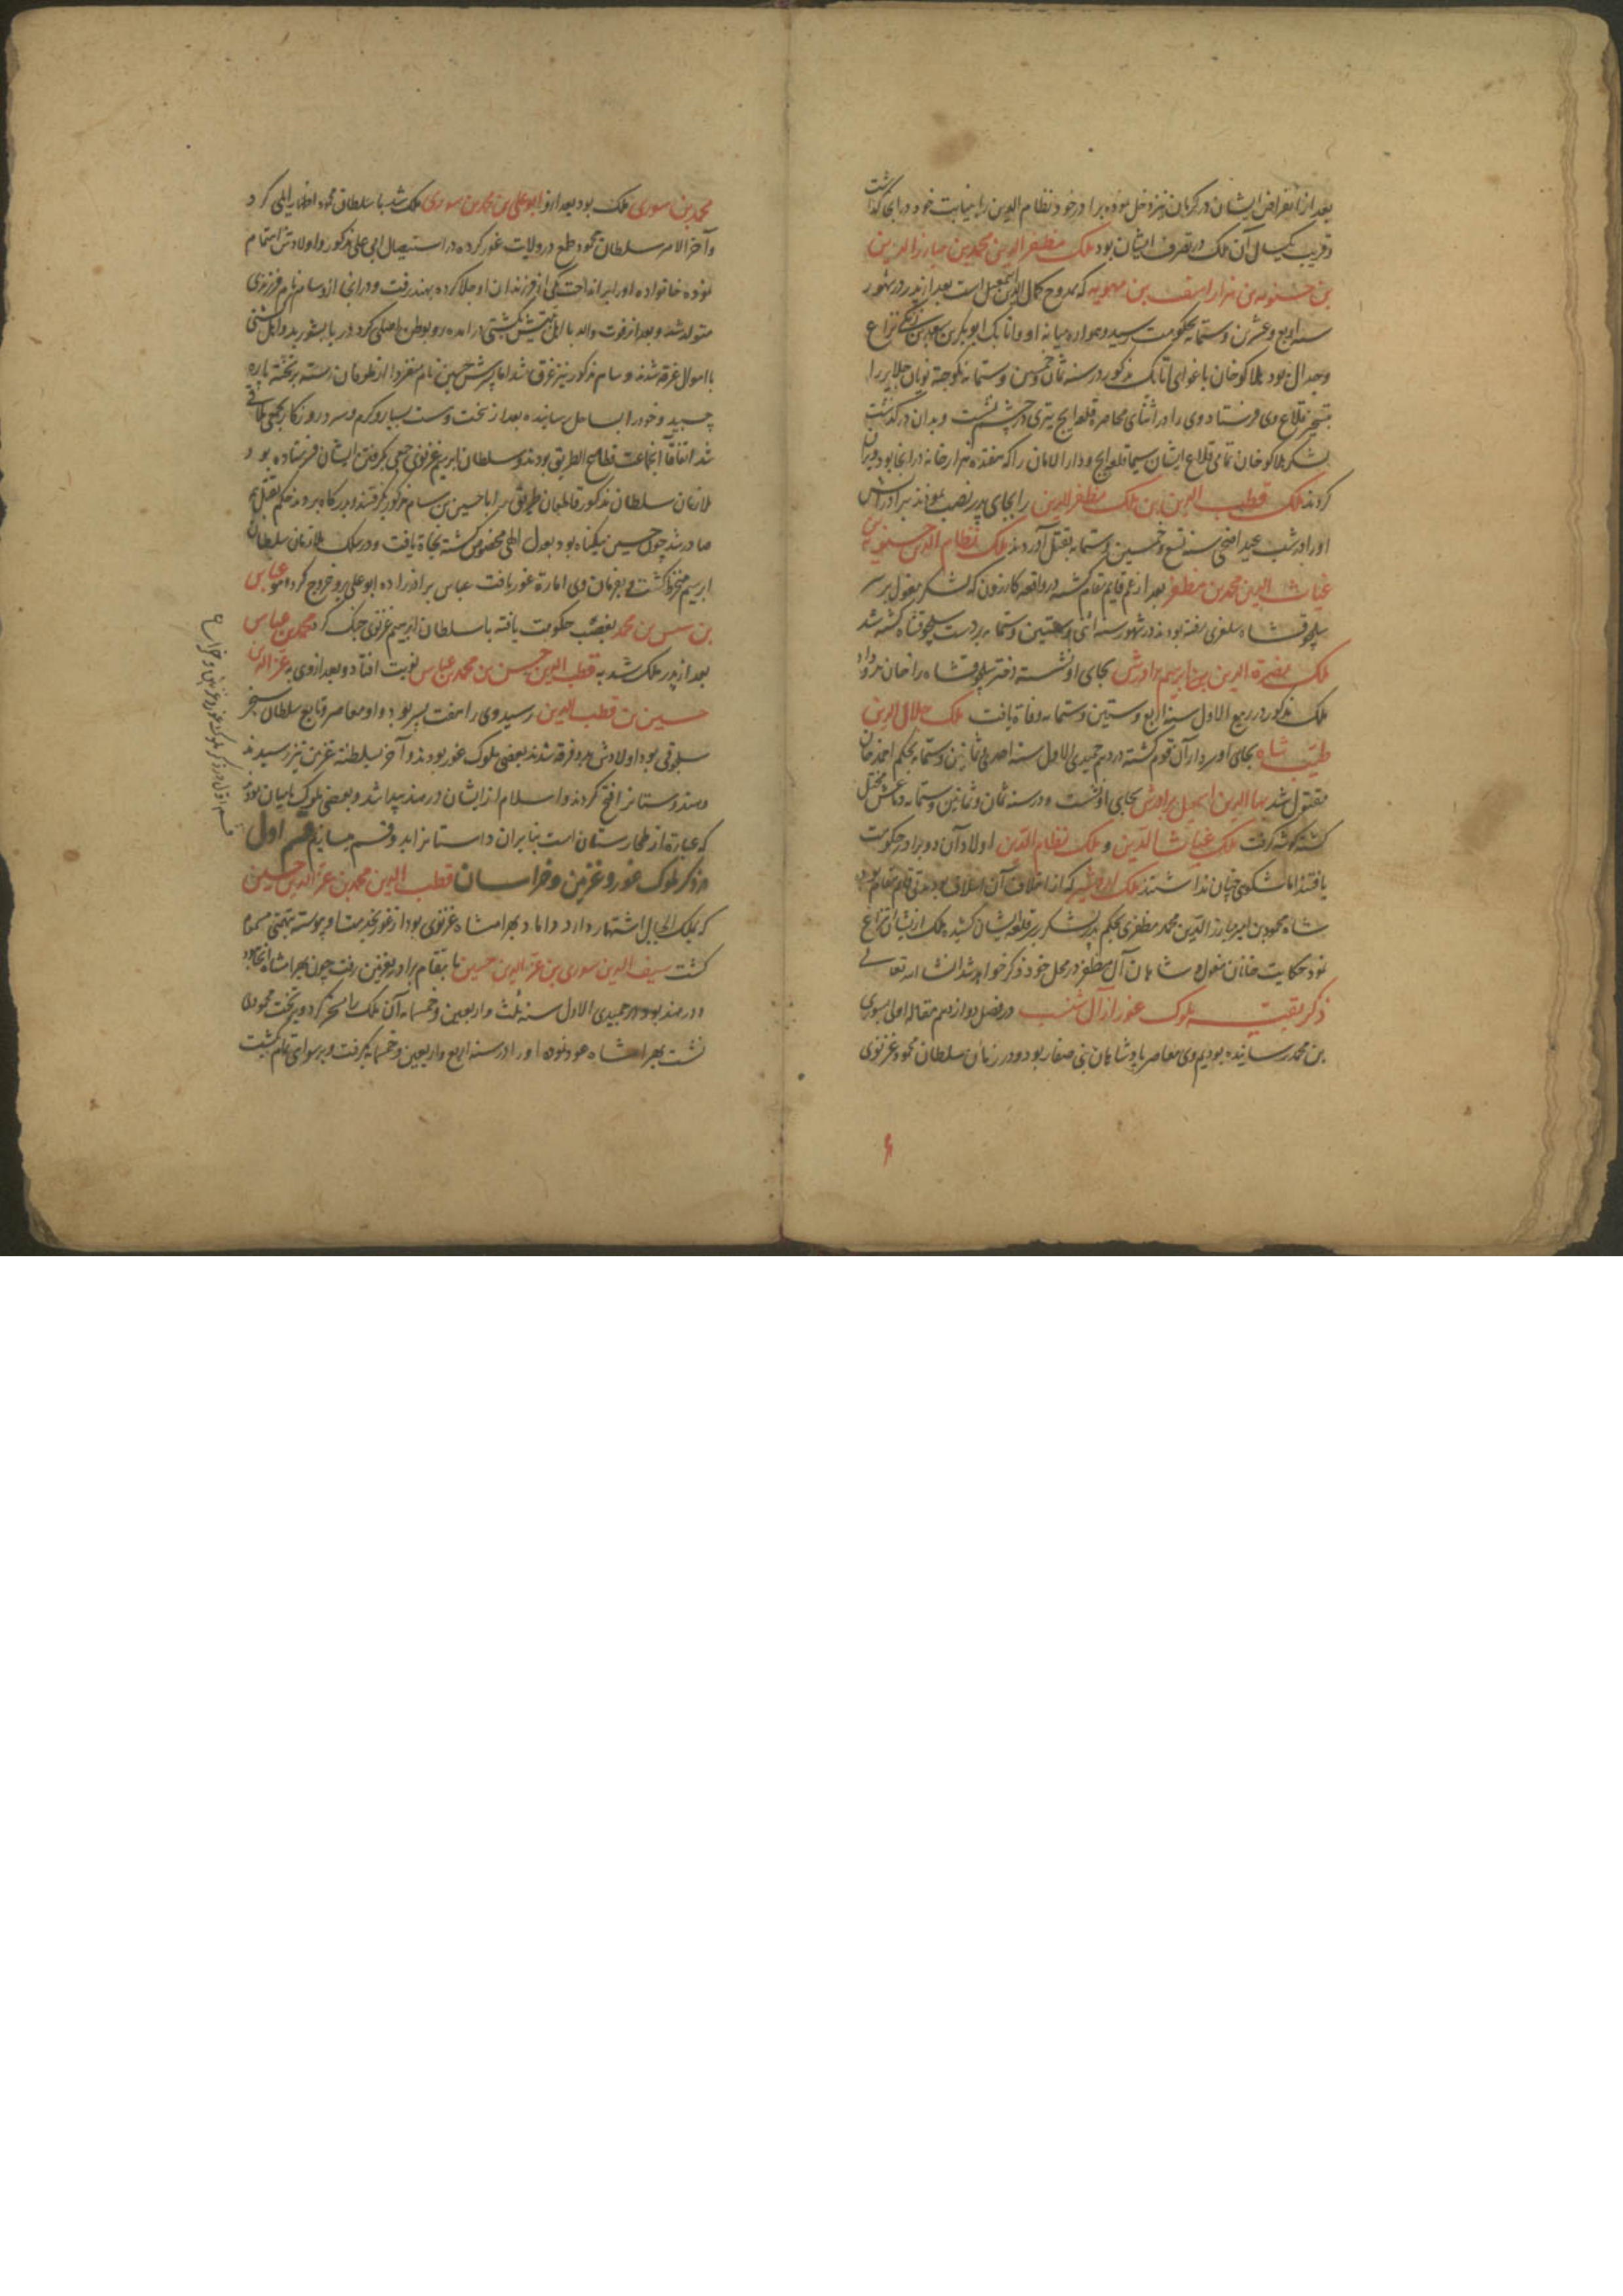 بعد از انقراض ایشان در کرمان نیز دخل نموده برادر خود نظام الدین را بنیابت خود در آنجا گذاشت
و قریب یکسال آن ملک در تصرف ایشان بود ملک مظفر الدین محمد بن مبارز الدین
بن حسنویه بن هزار اسف بن مهویه که ممدوح کمال الدین اسمعیل است بعد از پدر در شهور
سنه اربع و عشرین و ستمایه بحکومت رسید و همواره میانه او و اتابک ابو بکر بن سعد بن زنگی نزاع
و جدال بود هلاکو خان باغوای اتابک مذکور در سنه ثمان و خمسین و ستمایه نویان جلایر را
بتسخیر قلاع وی فرستاد وی را در اثنای محاصره قلعه ایج تیری در چشم نشست و بدان درگذشت
لشکر هلاکو خان تمامی قلاع ایشان سیما قلعه ایج و دار الامان را که هفده هزار خانه در آنجا بود ویران
کردند ملک قطب الدین بن ملک مظفر الدین را بجای پدر نصب نمودند برادرانش
او را در شب عید اضحی سنه تسع و خمسین و ستمایه بقتل آوردند ملک نظام الدین حسنویه بن
غیاث الدین محمد بن مظفر بعد از عم قایم مقام گشته در واقعه کازرون که لشکر مغول بر سر
سلجوقشاه سلغری رفته بودند در شهور سنه اثنی و ستین و ستمایه بر دست سلجوقشاه کشته شد
ملک نصرة الدین بن ابرهیم برادرش بجای او نشسته دختر سلجوقشاه را خان بدو داد
ملک مذکور در ربیع الاول سنه اربع و ستین و ستمایه وفاة یافت ملک جلال الدین
طیب شاه بجای او سردار آن قوم گشته در دهم جمیدی الاول سنه احدی و ثمانین و ستمایه بحکم احمد خان
مقتول شد بها الدین اسمعیل برادرش بجای او نشست و در سنه ثمان و ثمانین و ستمایه دماغش مختل
گشته گوشه گرفت ملک غیاث الدین و ملک نظام الدین اولاد آن دو برادر حکومت
یافتند اما شکوهی چنان نداشتند ملک اردشیر که از اخلاف آن اسلاف بود قایم مقام بود
شاه محمود بن امیر مبارز الدین محمد مظفری بحکم پدر لشکر بر قلعه ایشان کشیده ملک از ایشان انتزاع
نمود حکایت خانان مغول و شاهان آل مظفر در محل خود ذکر خواهد شد انشا الله تعالی
ذکر بقیه ملوک غور از آل شنسب در فصل دوازدهم مقاله اولی بسوری
بن محمد رسانیده بودیم وی معاصر پادشاهان بنی صفار بود و در زمان سلطان محمود غزنوی
محمد بن سوری ملک بود بعد ازو ابو علی بن محمد بن سوری ملک شد با سلطان محمود اظهار ایلی کرد
و آخر الامر سلطان محمود طمع در ولایت غور کرده در استیصال ابی علی مذکور و اولادش اهتمام
نموده خانواده او را برانداخت یکی از فرزندان او جلا کرده بهند رفت و در آنجا ازو سام نام فرزندی
متولد شد و بعد از فوت والد با اهل بیتش بکشتی درآمده رو بوطن اصلی کرد دریا بشورید و اهل کشتی
با اموال غرقه شدند و سام مذکور نیز غرق شد اما پسرش حسین نام منفردا از طوفان رسته بر تخته پاره
چسبید و خود را بساحل رسانیده بعد از سخت و سست بسیار و گرم و سرد روزگار
شد اتفاقا آنجماعت قطاع الطریق بودند و سلطان ابرهیم غزنوی جمعی بگرفتن ایشان فرستاده بود
ملازمان سلطان مذکور قاطعان طریق را با حسین بن سام مذکور بگرفتند و بدرگاه بردند حکم بقتل همه
صادر شد چون حسین بیگناه بود بعدل الهی مخصوص گشته نجاة یافت و در سلک ملازمان سلطان
ابرهیم منخرط گشت و بفرمان وی امارة غور یافت عباس برادر زاده ابو علی برو خروج کرده
بن سیس بن محمد بغصب حکومت یافته با سلطان ابرهیم غزنوی جنگ کرد محمد بن عباس
بعد از پدر ملک شد به قطب الدین حسن بن محمد بن عباس نوبت افتاد و بعد از وی به عز الدین
حسین بن قطب الدین رسید وی را هفت پسر بود و او معاصر و تابع سلطان سنجر
سلجوقی بود اولادش بدو فرقه شدند بعضی ملوک غور بودند و آخر بسلطنة غزنین نیز رسیدند
و هندوستان را فتح کردند و اسلام از ایشان در هند پیدا شد و بعضی ملوک بامیان بودند
که عبارة از طخارستان است بنابران داستان را بدو قسم میسازیم قسم اول
در ذکر ملوک غور و غزنین و خراسان قطب الدین محمد بن عز الدین حسین
که بملک الجبال اشتهار دارد داماد بهرامشاه غزنوی بود از غور بخدمتش پیوسته بتهمتی مسموم
گشت سیف الدین سوری بن عز الدین حسین بانتقام برادر بغزنین رفت چون بهرامشاه آنجا نبود
در هند بود در جمیدی الاول سنه ثلث و اربعین و خمسمایه آن ملک را مسخر کرد و بر تخت محمودی
نشست بهرامشاه عود نموده او را در سنه اربع و اربعین و خمسمایه بگرفت و برسوایی تمام بکشت
قسم اول در ذکر ملوک غور و غزنین و خراسان